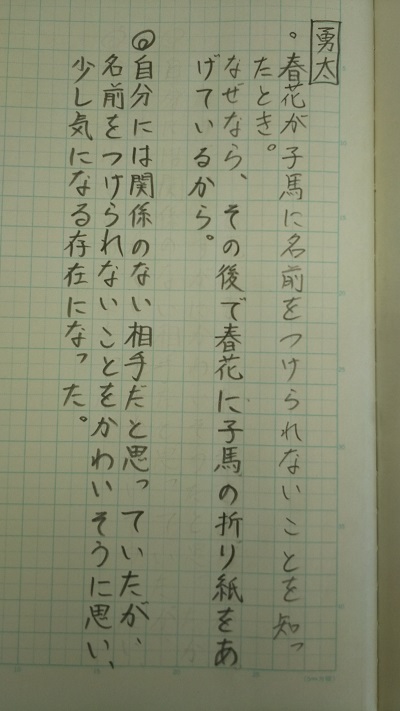 勇太
・春花が子馬に名前をつけられないことを知っ
たとき。
なぜなら、その後で春花に子馬の折り紙をあ
げているから。
◎自分には関係のない相手だと思っていたが、
名前をつけられないことをかわいそうに思い、
少し気になる存在になった。